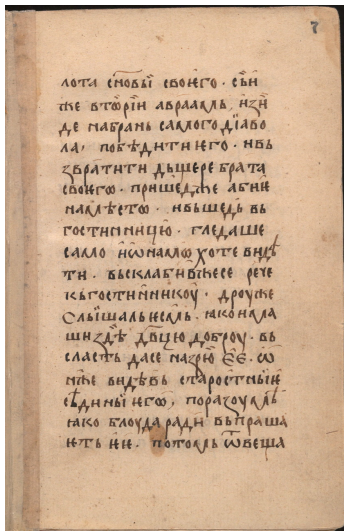 7
лота сн҃овыѝ своѥго · съи
же вторїи авраамь, изы
де на брань самого дїаво
ла, побѣдити ѥго · и въ
звратити дьщере брата
своѥгѡ · пришедже абиѥ
на мѣстѡ · и въшедь вь
гостинницѹ · гледаше
само и ѡнамѡ хоте видѣ
ти · вьсклабив же се рече
кь гостинникоу · дроуже
слышаль ѥсмь ꙗко имa
ши здѣ дв҃цѹ доброу · вь
сласть да се назрю ѥѥ · ѡ
нже видѣвь старостныѥ
сѣдины ѥгѡ, поразоумѣ
ꙗко блоуда ради вьпраша
ѥть ѥѥ · потомь ѿвеща